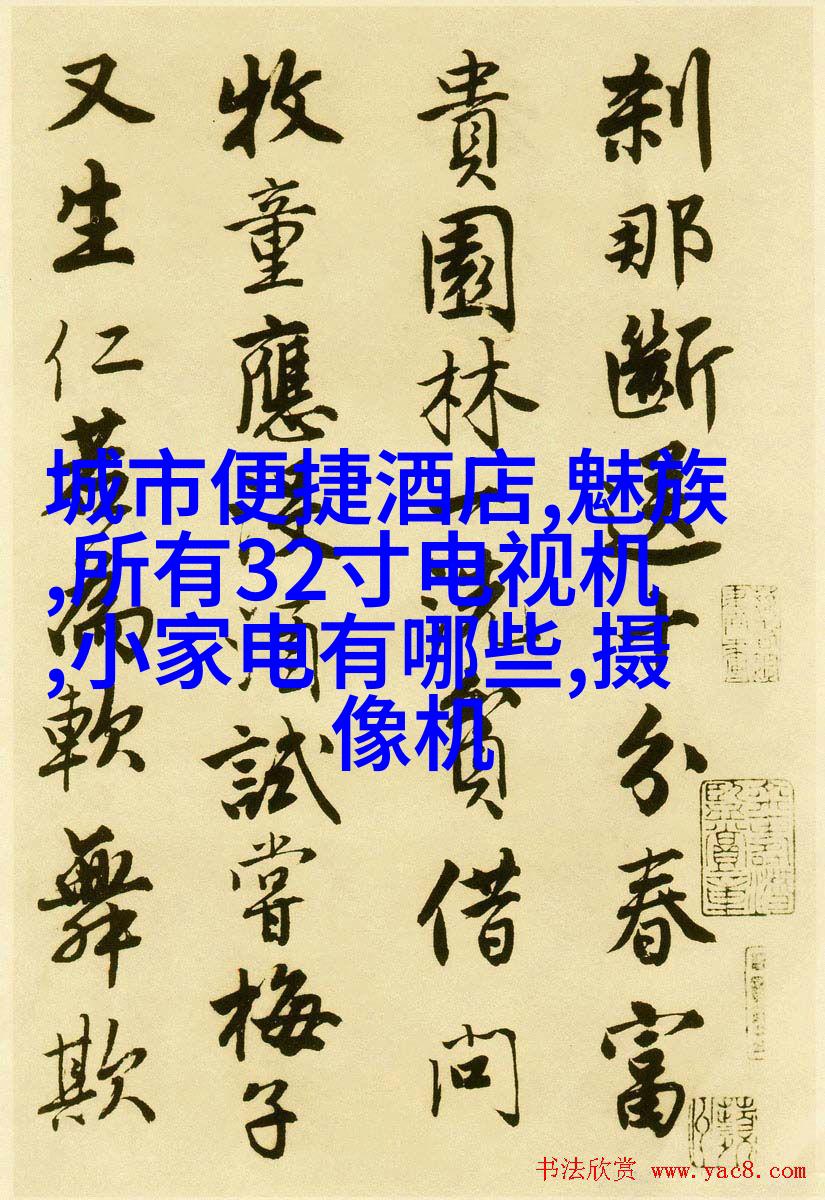 刹那斷送十分春富
貴園林一洗貧借問
牧童應沒酒試嘗梅子
又生仁若為軟舞欺
城市便捷酒店,魅族
,所有32寸电视机
,小家电有哪些,摄
像机
书法欣赏 www.yac8.com